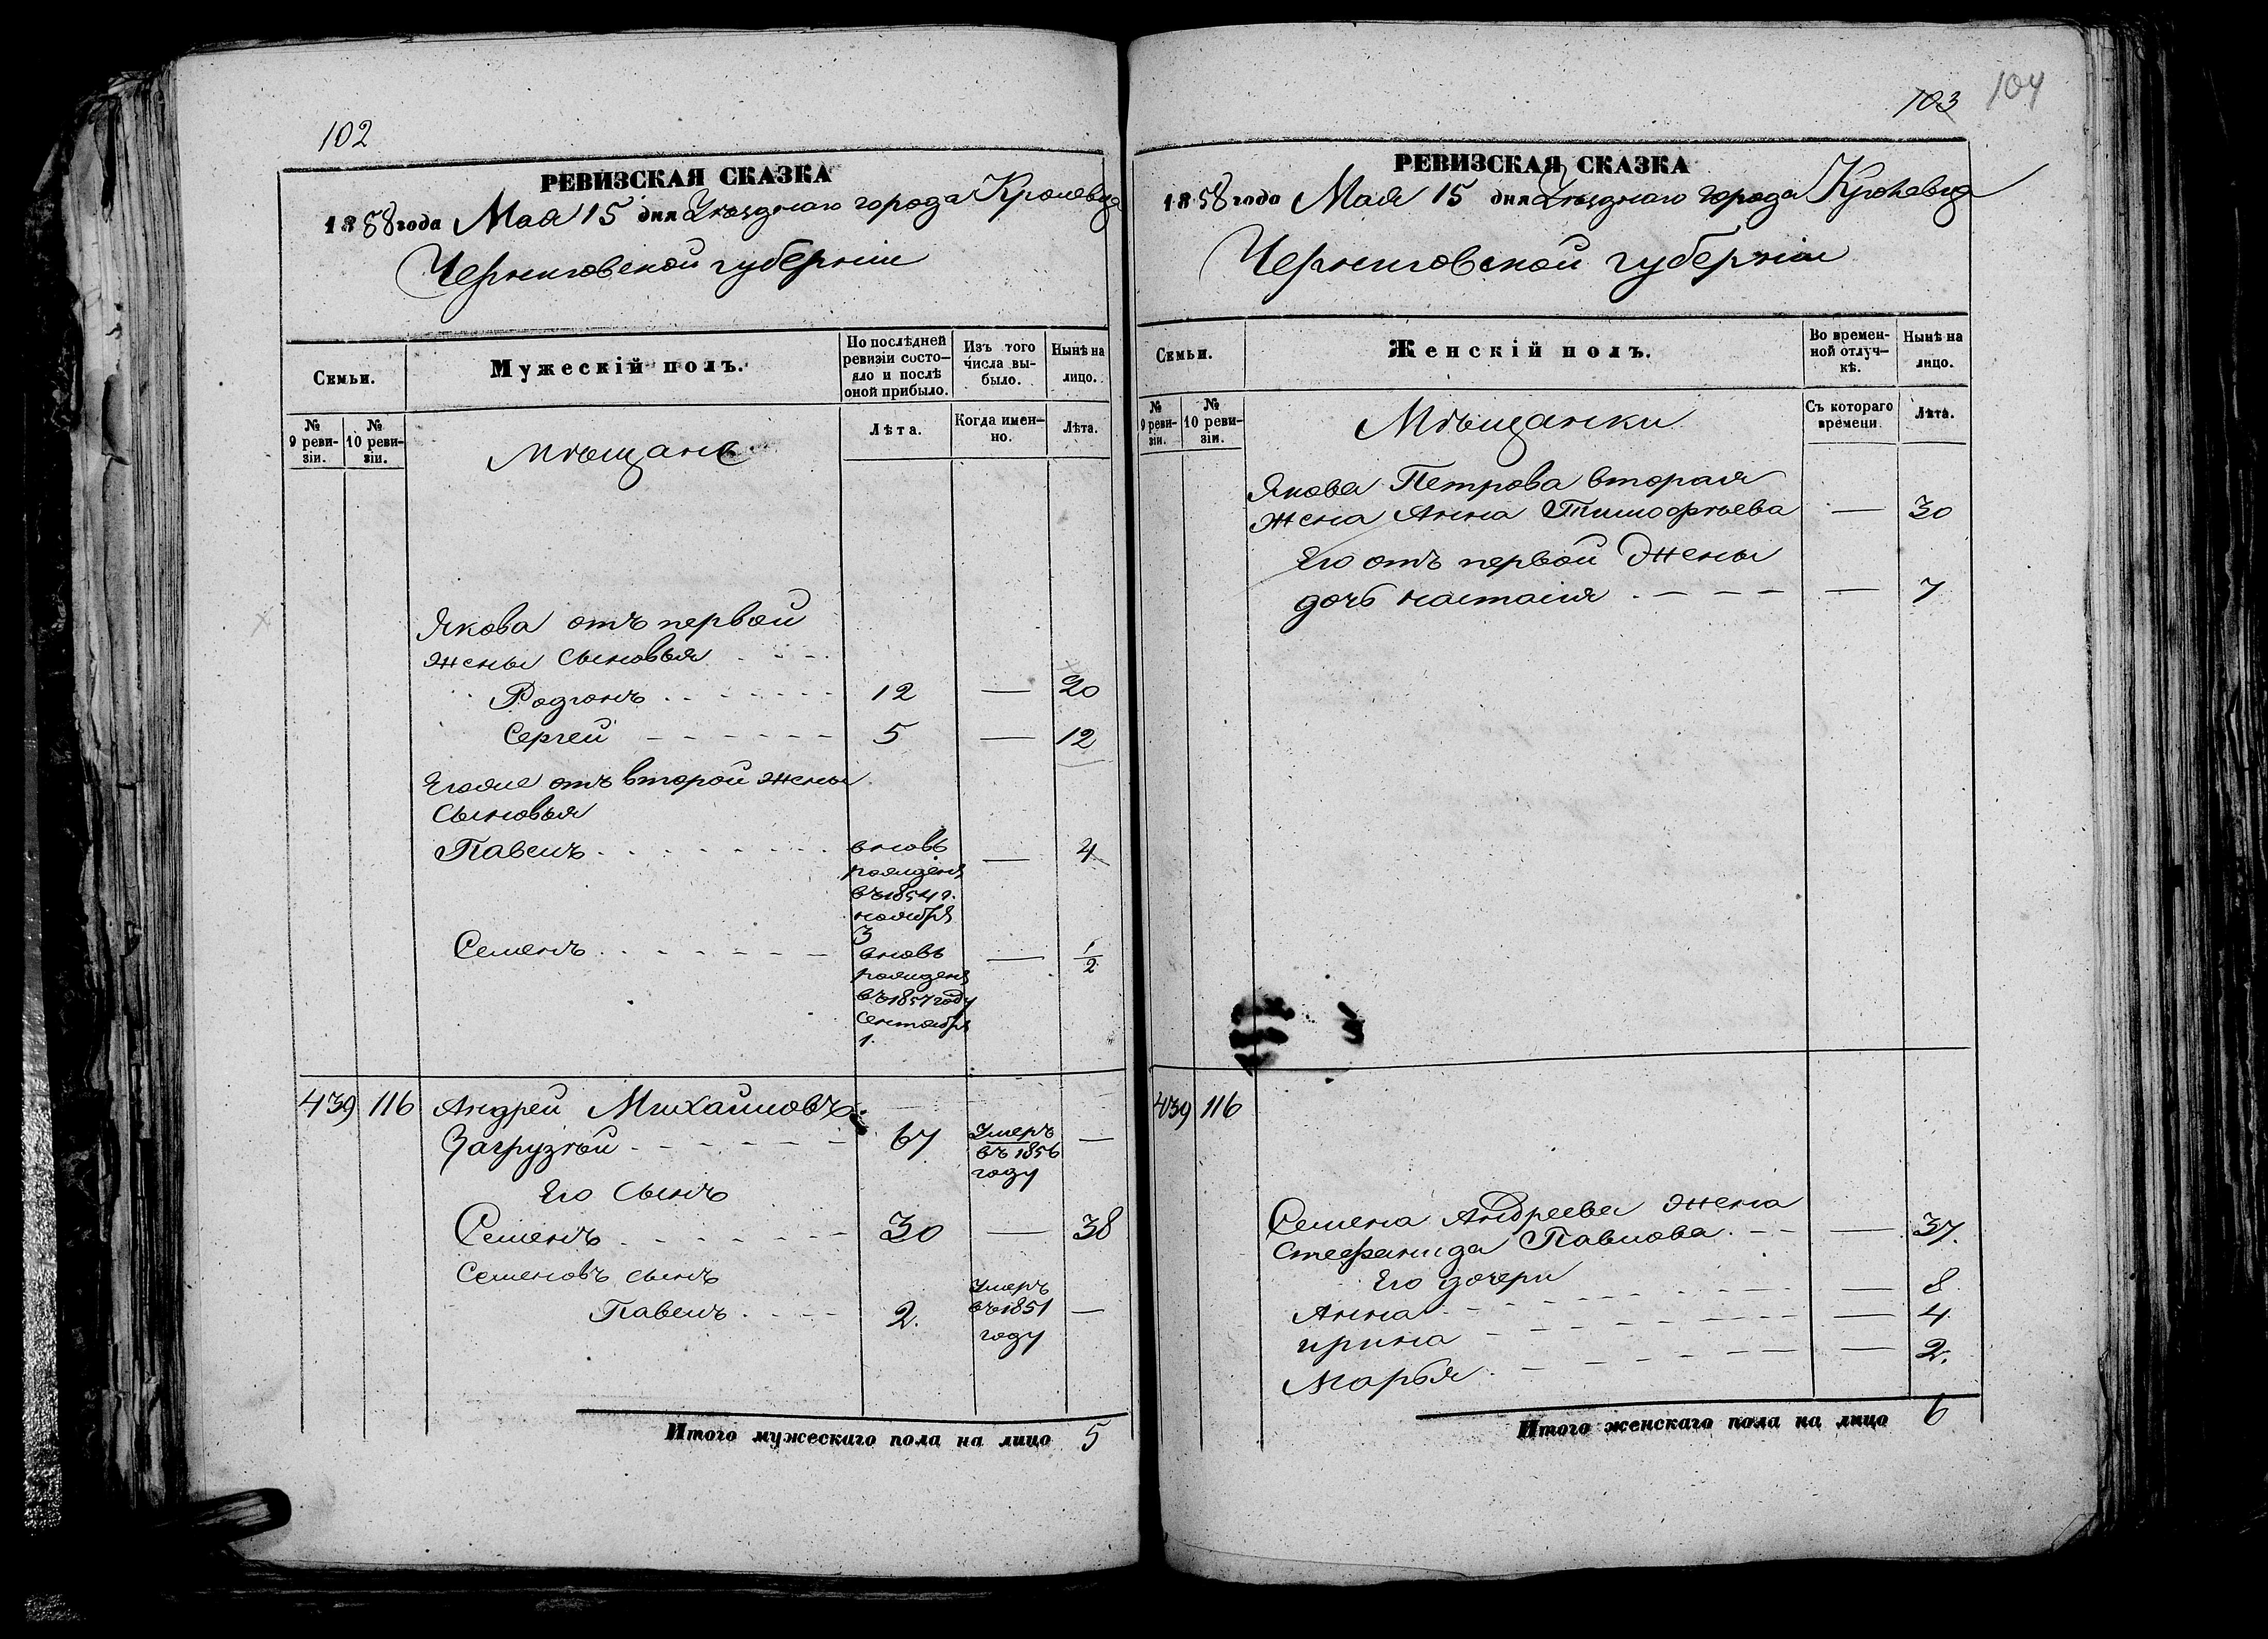 102
РЕВИЗСКАЯ СКАЗКА
1858 года Мая 15 дня Уѣзднаго города Кролевца
Черниговской губерніи
Семьи.
Мужескій полъ.
По послѣдней ревизіи состояло и послѣ оной прибыло.
Изъ того числа выбыло.
Нынѣ на лицо.
№ 9 ревизіи.
№ 10 ревизіи.
Мѣщане
Лѣта.
Когда именно.
Лѣта.
Якова отъ первой
жены сыновья
Родіонъ 12 — 20
Сергей 5 — 12
Егоже отъ второй жены
сыновья
Павелъ вновь — 4
рожденъ
въ 1854 г.
ноября
3
Семенъ вновь — 1/2
рожденъ
въ 1857 году
сентября
1.
439 116 Андрей Михайловъ
Загрузкый 67 Умеръ —
въ 1856
году
Его сынъ
Семенъ 30 — 38
Семеновъ сынъ
Павелъ 2. Умеръ въ 1851 году —
Итого мужескаго пола на лицо 5
103 104
РЕВИЗСКАЯ СКАЗКА
1858 года Мая 15 дня Уѣзднаго города Кролевца
Черниговской губерніи
Семьи.
Женскій полъ.
Во временной отлучкѣ.
Нынѣ на лицо.
№ 9 ревизіи.
№ 10 ревизіи.
Мѣщанки
Съ котораго времени
Лѣта.
Якова Петрова вторая
жена Анна Тимофѣева — 30
Его отъ первой жены
дочь настасія — 7
439 116
Семена Андреева жена
Стефанида Павлова — 37.
Его дочери
Анна — 8
ирина — 4
Марья — 2.
Итого женскаго пола на лицо 6